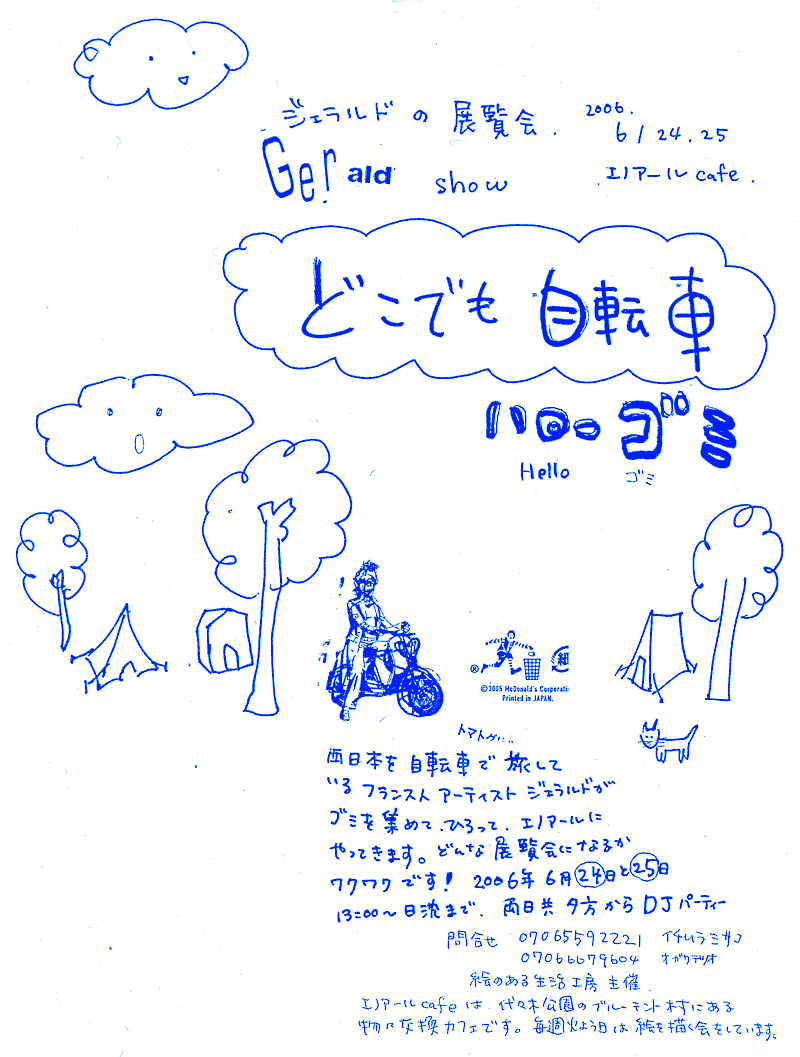 ジェラルドの展覧会.
2006.
6/24.25
Gerald show
エノアール cafe.
どこでも自転車
ハローゴミ
Hello ゴミ
®
©2005 McDonald's Corporation
Printed in JAPAN.
西日本を自転車で旅して
いるフランス人アーティスト ジェラルドが
ゴミを集めて、ひろって、エノアールに
やってきます。どんな展覧会になるか
ワクワクです! 2006年6月24日と25日
13:00〜日沈まで、両日共夕方からDJパーティー
問合せ 07065592221 イチムラミサコ
07066679604 オガワテツオ
絵のある生活工房 主催.
エノアールcafeは、代々木公園のブルーテント村にある
物々交換カフェです。毎週火よう日は絵を描く会をしています。